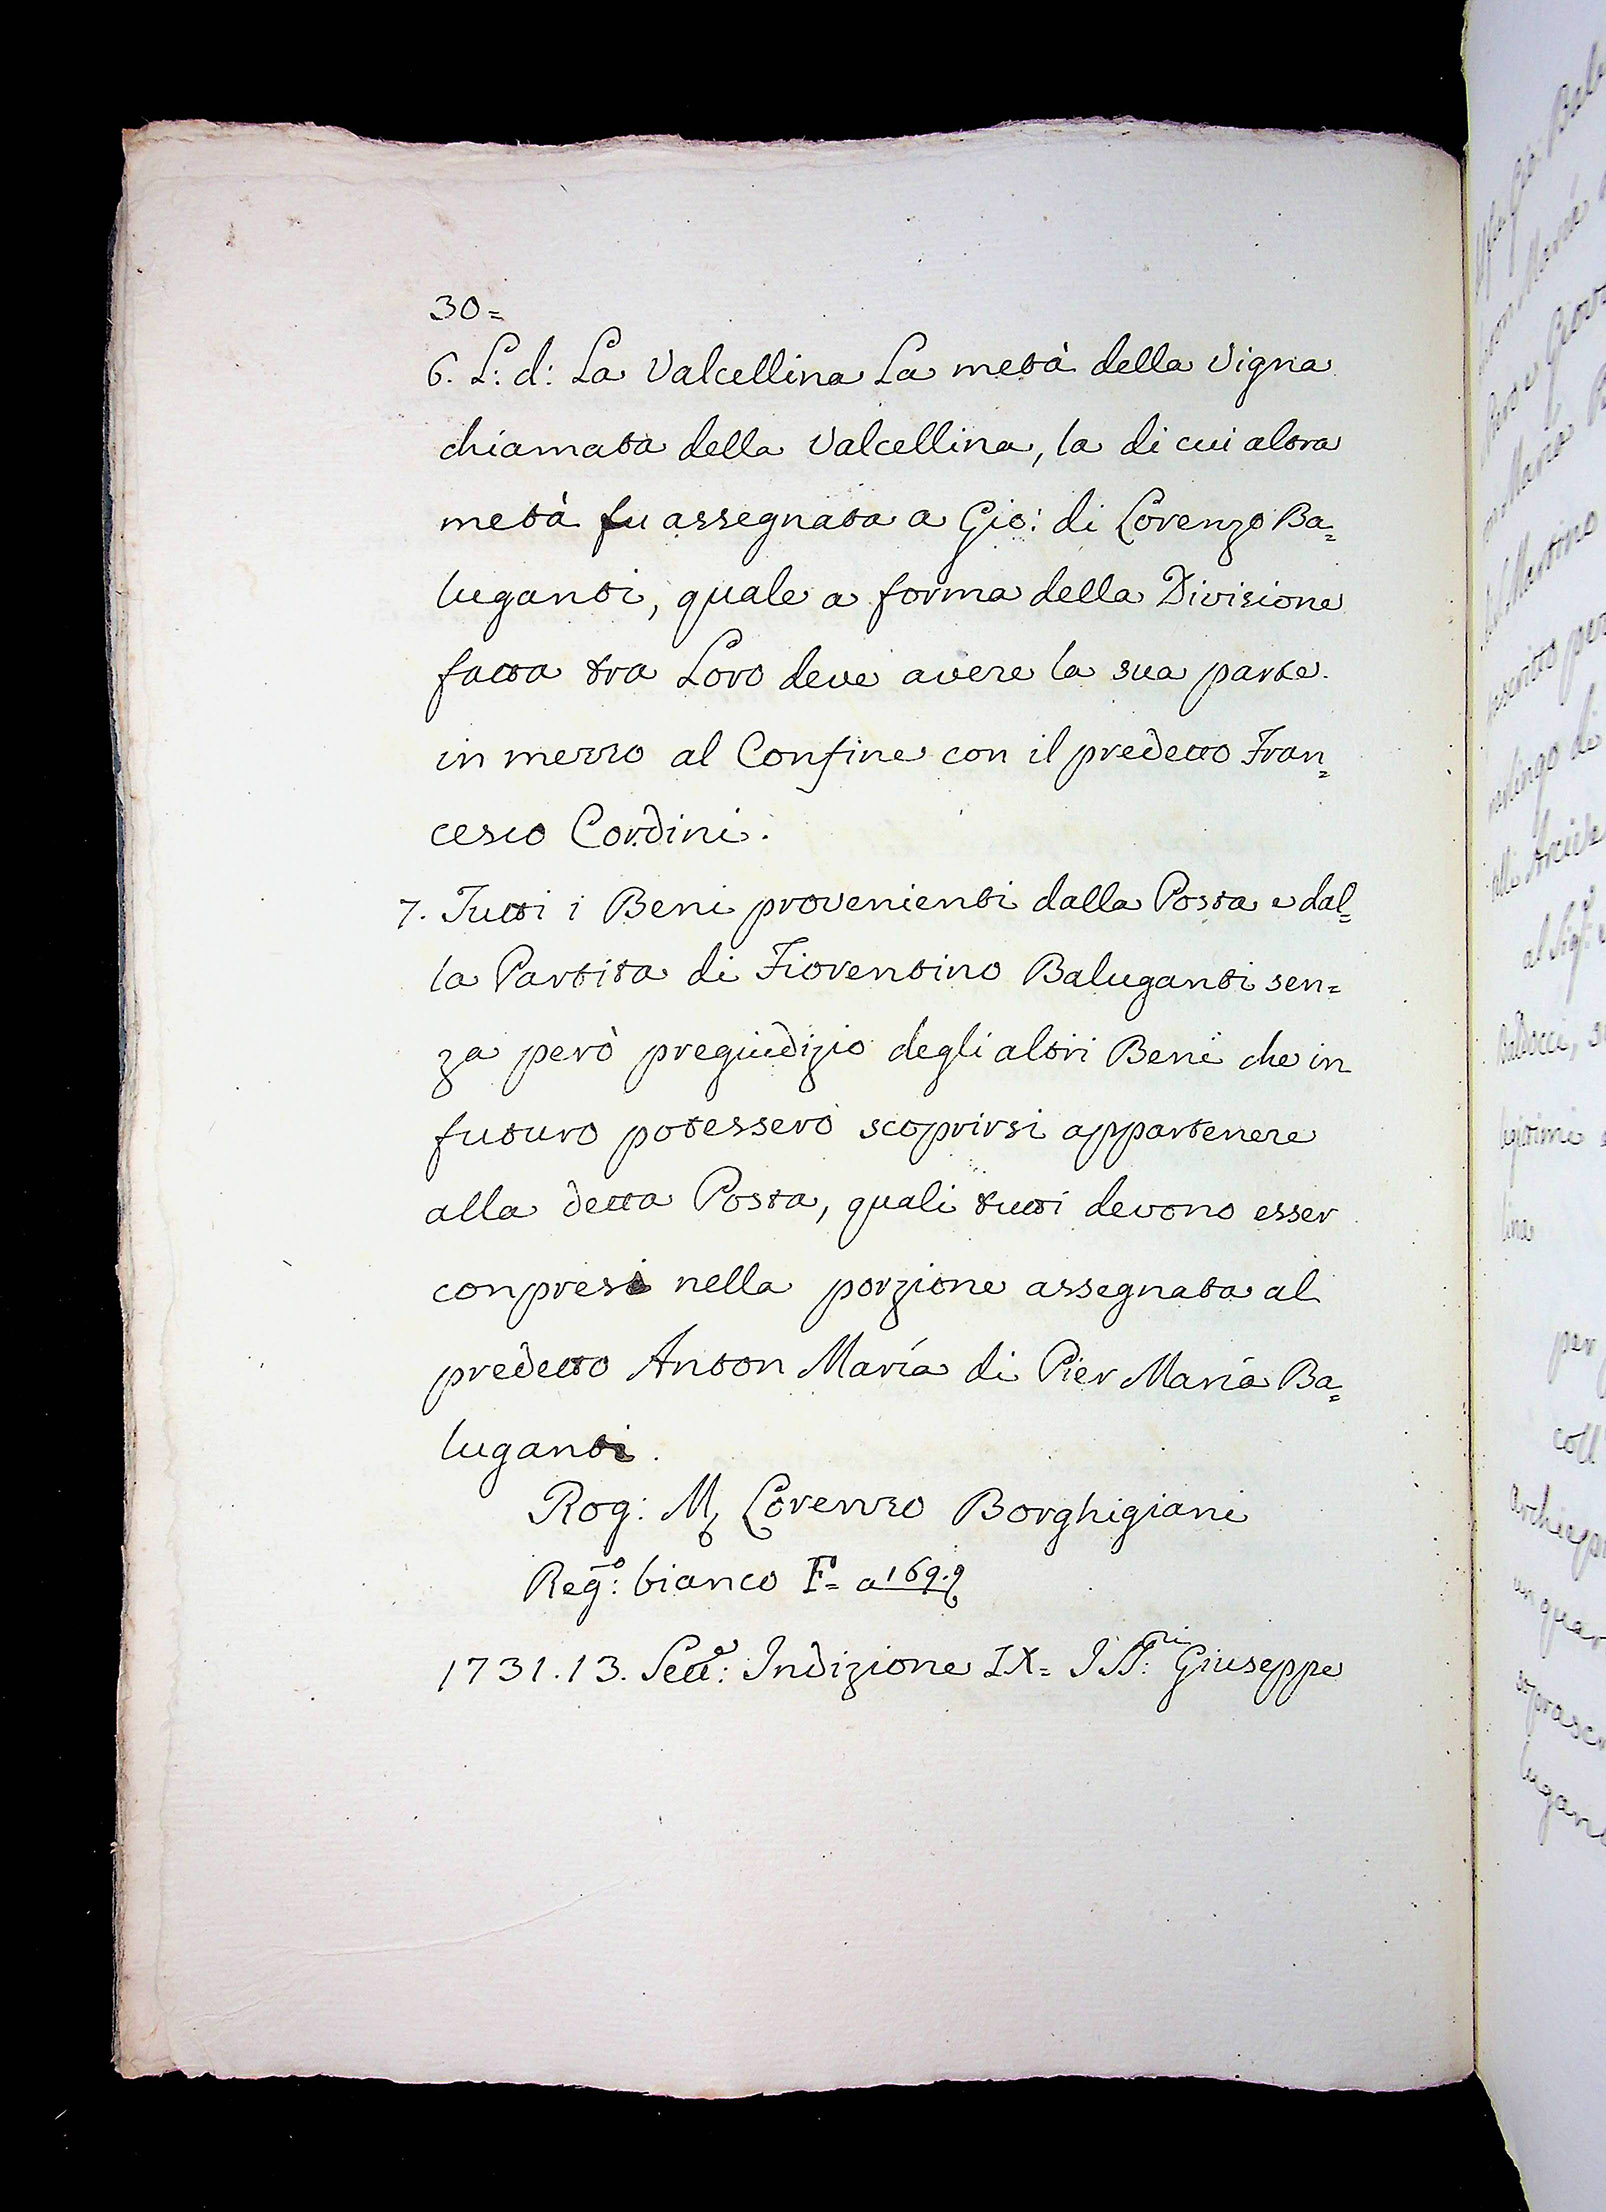 30=
6. L: d: La Valcellina La metà della Vigna
chiamata della Valcellina, la di cui altra
metà fu assegnata a Gio: di Lorenzo Ba=
luganti, quale a forma della Divisione
fatta tra Loro deve avere la sua parte
in mezzo al Confine con il predetto Fran=
cesco Cordini.
7. Tutti i Beni provenienti dalla Posta e dal=
la Partita di Fiorentino Baluganti sen=
za però pregiudizio degli altri Beni che in
futuro potessero scoprirsi appartenere
alla detta Posta, quali tutti devono esser
conpresi nella porzione assegnata al
predetto Anton Maria di Pier Maria Ba=
luganti.
Rog: M Lorenzo Borghigiani
Reg:o bianco F= a 169.
1731. 13. Sett:e Indizione IX= I SS:ri Giuseppe